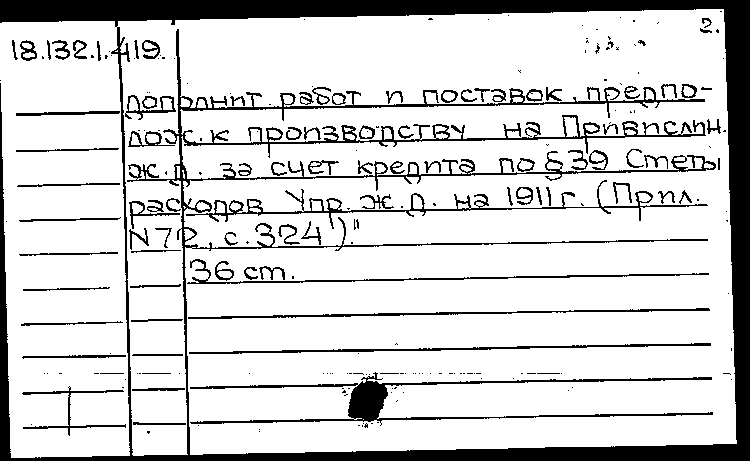 2.
18.132.1.419.
дополнит. работ и поставок, предпо-
лож. к производству на Привислин.
ж.д. за счет кредита по § 39 Сметы
расходов Упр. ж.д. на 1911 г. (Прил.
N72, с. 324)."
36 ст.